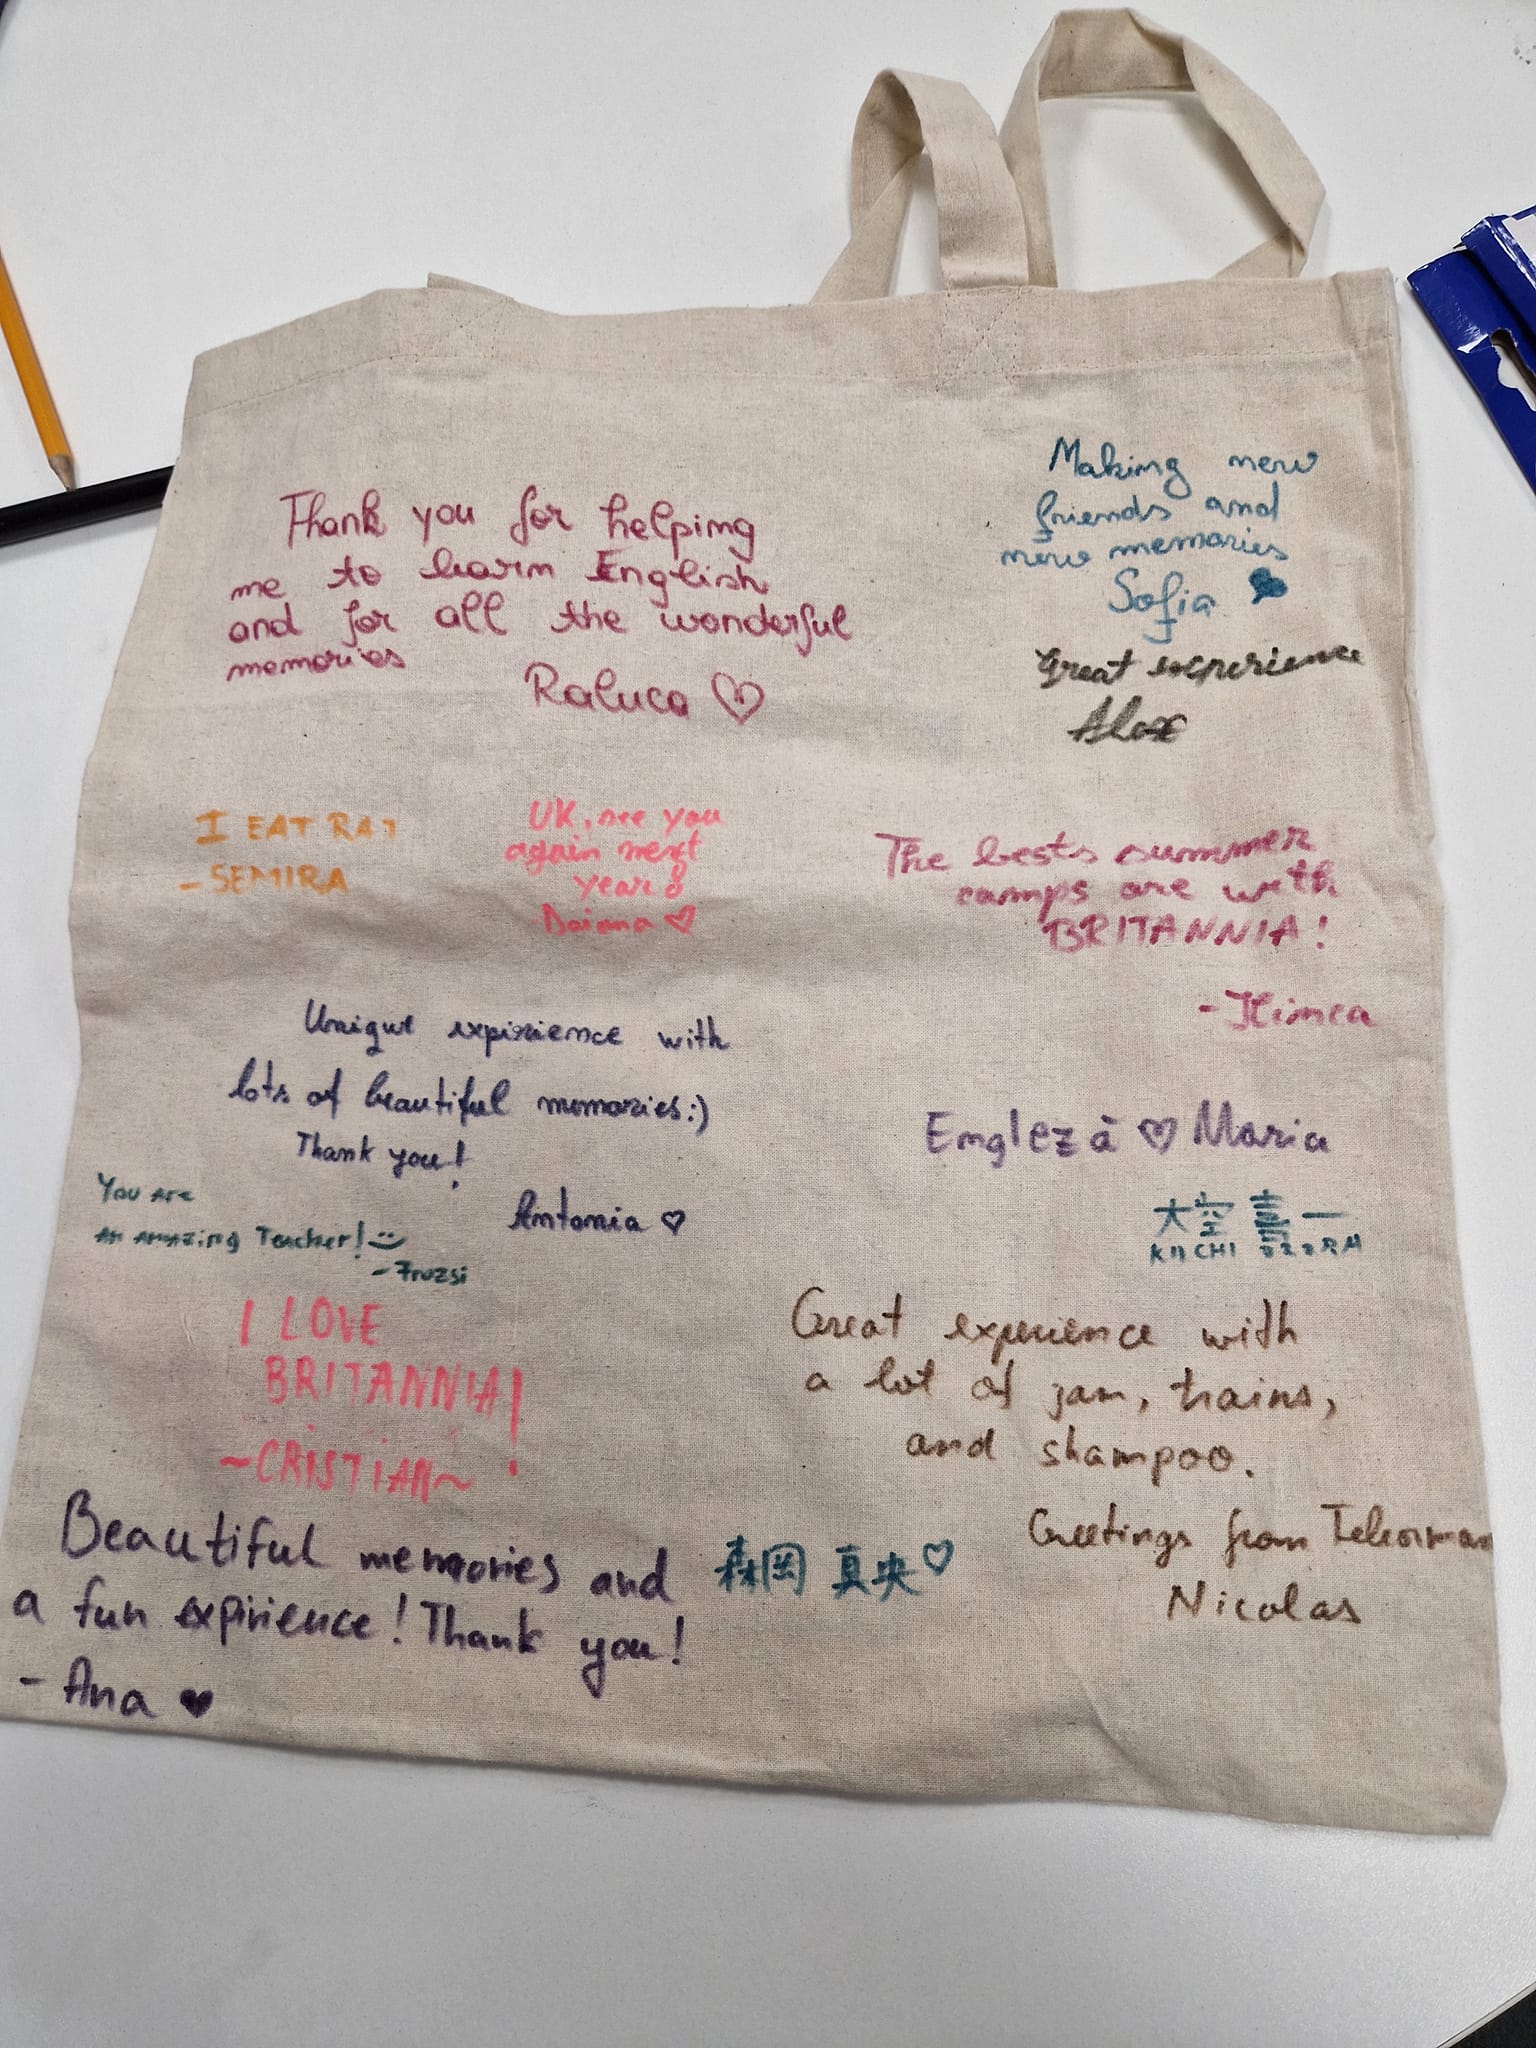 Thank you for helping
me to learn English
and for all the wonderful
memories
Raluca
Making new
friends and
new memories
Sofia
Great experience
Alex
I EAT RAT
-SEMIRA
UK, see you
again next
year
Daiana
The bests summer
camps are with
BRITANNIA!
-Ilinca
Unique expirience with
lots of beautiful memories:)
Thank you!
Antonia
Engleză ♡ Maria
You are
An amazing Teacher!
-Fruzsi
大空 喜一
KIICHI OZORA
I LOVE
BRITANNIA!
~CRISTIAN~
Great experience with
a lot of jam, trains,
and shampoo.
Greetings from Teleorman
Nicolas
Beautiful memories and
a fun expirience! Thank you!
- Ana
森岡 真央